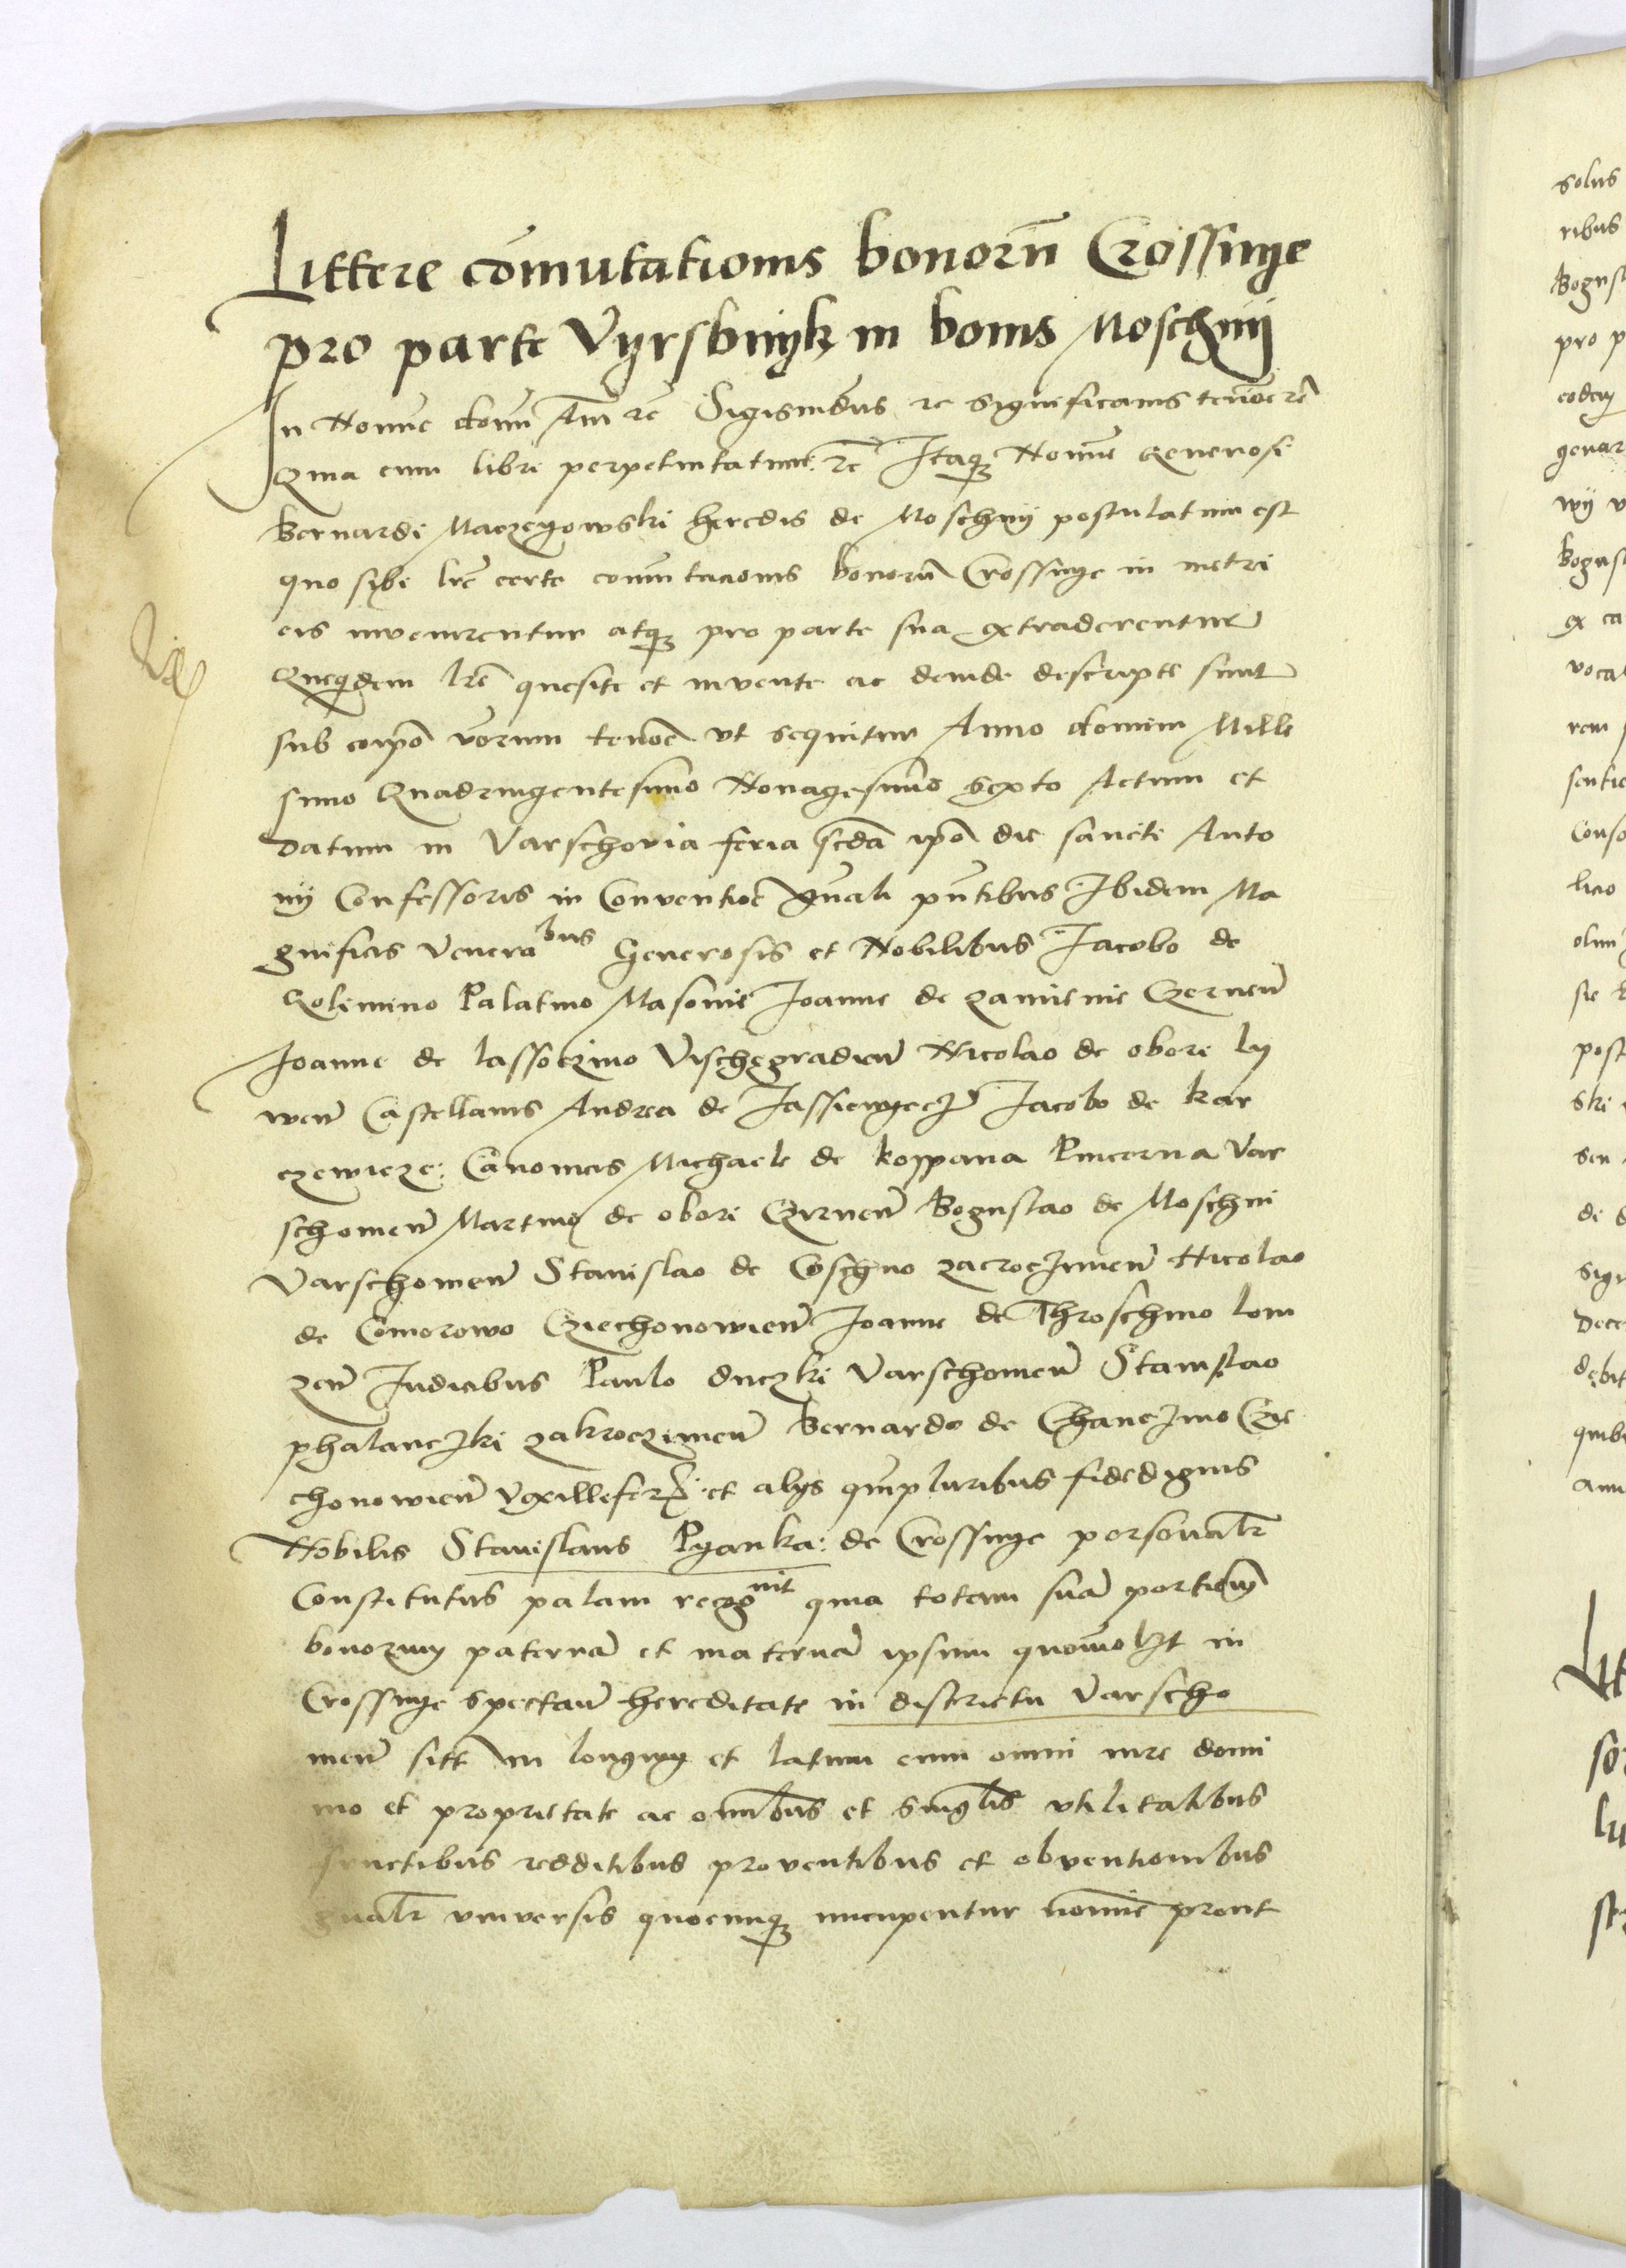 Littere comutationis bonorũ Crossinye
pro parte Vyrsbnyk in bonis Moschnij
In Nomine domini Am̃ rc̃ Sigismũdus rc significamus tenore rc̃
Quia cum libri perpetuitatum rc̃ Itaqꝫ Nomine Generosi
Bernardi Maczeyowski heredis de Moschnij postulatum est
quo sibi lrẽ certe comutacionis bonorũ Crossinye in metri
cis invenirentur atqꝫ pro parte sua extraderentur
Quequidem lrẽ quesite et invente ac deinde descripte sunt
sub eoipo verum tenore vt sequitur Anno domini Mille
simo Quadringentesimo Nonagesimo sexto Actum et
datum in Varschovia feria scda ipo die sancti Anto
nij Confessoris in Conventioe gnali pntibus Ibidem Ma
gnificis Venerabus Generosis et Nobilibus Jacobo de
Golimino Palatino Masovie Joanne de zamienie Czernen̄
Joanne de lassoczino Vischegradien̄ Nicolao de obori ly
wen̄ Castellanis Andrea de Jassienyecz Jacobo de kar
czewicze: Canonicis Michaele de koppana Pincerna Var
schovien̄ Martino de obori Czirnen̄ Boguslao de Moschni
Varschovien̄ Stanislao de Coschno zacroczimen̄ Nicolao
de Comorowo Cziechonowien̄ Joanne de Throschino lom
zen̄ Judicibus Paulo duczki Varschovien̄ Stanislao
phalanczki zakroczimen̄ Bernardo de Chanczino Czie
chonowien̄ Vexillefer: et alijs quipluribus fidedignis
Nobilis Stanislaus Pyanka: de Crossinye personalr̃
Constitutus palam recognit quia totam suã portionẽ
bonorum paternã et maternã ipsum quomolꝫt in
Crossinye spectan̄ hereditate in districtu Varscho
vien̄ sitt in longum et latum cum omni iure domi
nio et proprietate ac omnibus et singlis vtilitatibus
fructibus redditibus proventibus et obventionibus
gnalr̃ vniversis quocunqꝫ nuncupentur nomine prout